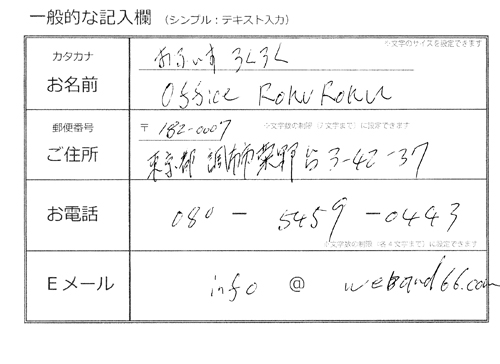 一般的な記入欄 (シンプル：テキスト入力)
カタカナ
※文字のサイズを設定できます
おふぃす ろくろく
お名前
Office RokuRoku
郵便番号
〒 182-0007
※文字数の制限(7文字まで)に設定できます
ご住所
東京都 調布市菊野台3-42-37
お電話
080 - 5459 - 0443
※文字数の制限(各4文字まで)に設定できます
Eメール
info @ weband66.com